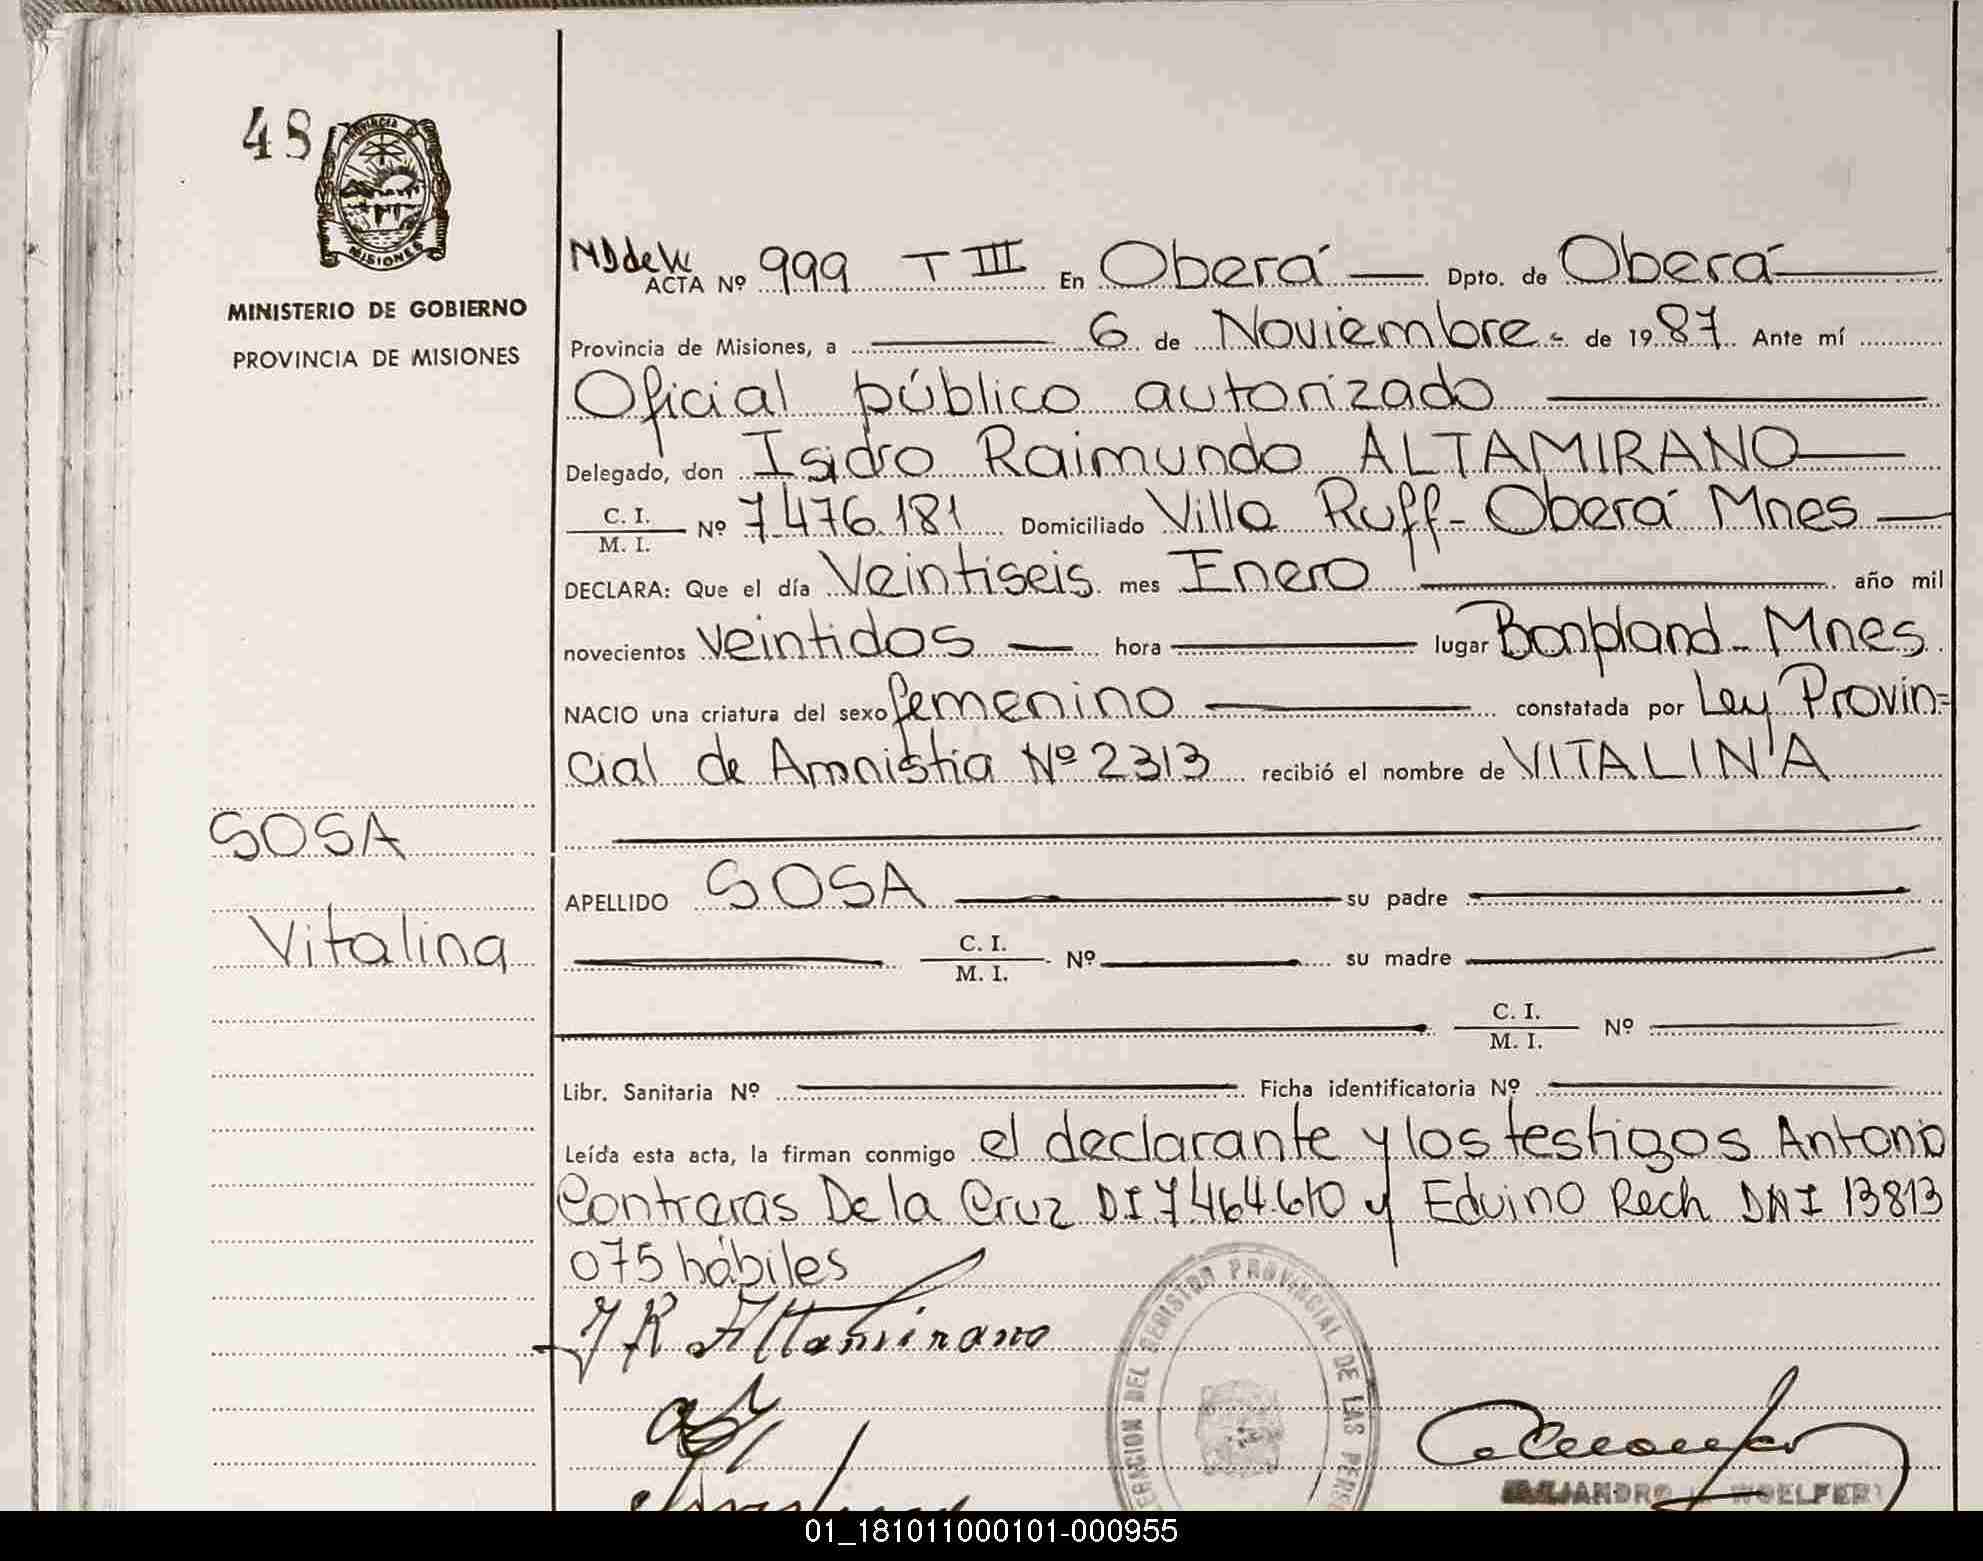 48
PROVINCIA DE
MISIONES
MINISTERIO DE GOBIERNO
PROVINCIA DE MISIONES
SOSA
Vitalina
ACTA Nº 999 T III En Oberá Dpto. de Oberá
Provincia de Misiones, a 6 de Noviembre de 1987 Ante mí
Oficial público autorizado
Delegado, don Isidro Raimundo ALTAMIRANO
C. I.
M. I. Nº 7.476.181 Domiciliado Villa Ruff - Oberá Mnes
DECLARA: Que el día Veintiseis mes Enero año mil
novecientos veintidos hora lugar Bonpland - Mnes
NACIO una criatura del sexo femenino constatada por Ley Provin=
cial de Amnistia Nº 2313 recibió el nombre de VITALINA
APELLIDO SOSA su padre
C. I.
M. I. Nº su madre
C. I.
M. I. Nº
Libr. Sanitaria Nº Ficha identificatoria Nº
Leída esta acta, la firman conmigo el declarante y los testigos Antonio
Contreras De la Cruz DI 7.464.610 y Eduino Rech DNI 13813
075 hábiles
J R Altamirano
DEL REGISTRO PROVINCIAL DE LAS
WOELFER
01_181011000101-000955